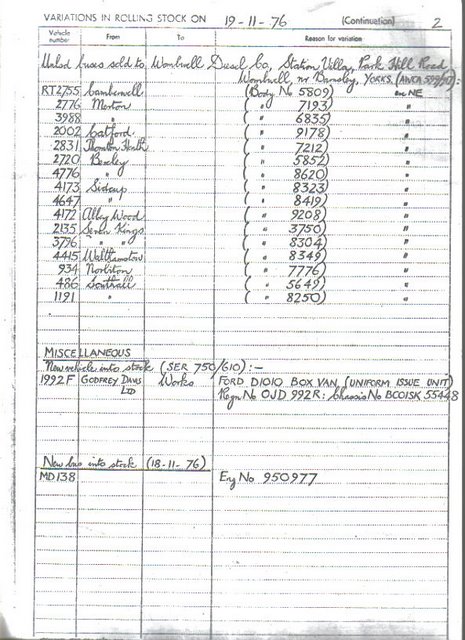 VARIATIONS IN ROLLING STOCK ON 19-11-76 (Continuation) 2
Vehicle number From To Reason for variation
Unlsd buses sold to Wombwell Diesel Co, Station Villa, Park Hill Road
Wombwell, nr Barnsley, YORKS.
RT2755 Camberwell (Body No 5809)
2776 Merton ( " 7193) "
3988 " ( " 6835) "
2002 Catford ( " 9178) "
2831 Thornton Heath ( " 7212) "
2720 Bexley ( " 5852) "
4776 " ( " 8620) "
4173 Sidcup ( " 8323) "
4647 " ( " 8419) "
4172 Abbey Wood ( " 9208) "
2135 Seven Kings ( " 3750) "
3796 " " ( " 8304) "
4415 Walthamstow ( " 8349) "
934 Norbiton ( " 7776) "
486 Southall ( " 5649) "
1191 " ( " 8250) "
MISCELLANEOUS
New vehicle into stock (SER 750/610):-
1992F GODFREY DAVIS Works FORD D1010 BOX VAN (UNIFORM ISSUE UNIT)
LTD Regn No OJD 992R: Chassis No BC01SK 55448
New bus into stock (18-11-76)
MD138 Eng No 950977